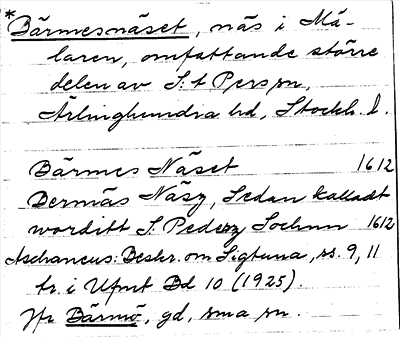 *Bärmesnäset, näs i Mä-
laren, omfattande större
delen av S:t Pers sn,
Ärlinghundra hd, Stockh. l.
Bärmes Näset 1612
Bermäs Näsz, Sedan kalladt
worditt S. Pederz Sochnn 1612
Aschaneus: Beskr. om Sigtuna, ss. 9, 11
tr. i Ufmt Bd 10 (1925).
Jfr Bärmö, gd, sma sn.